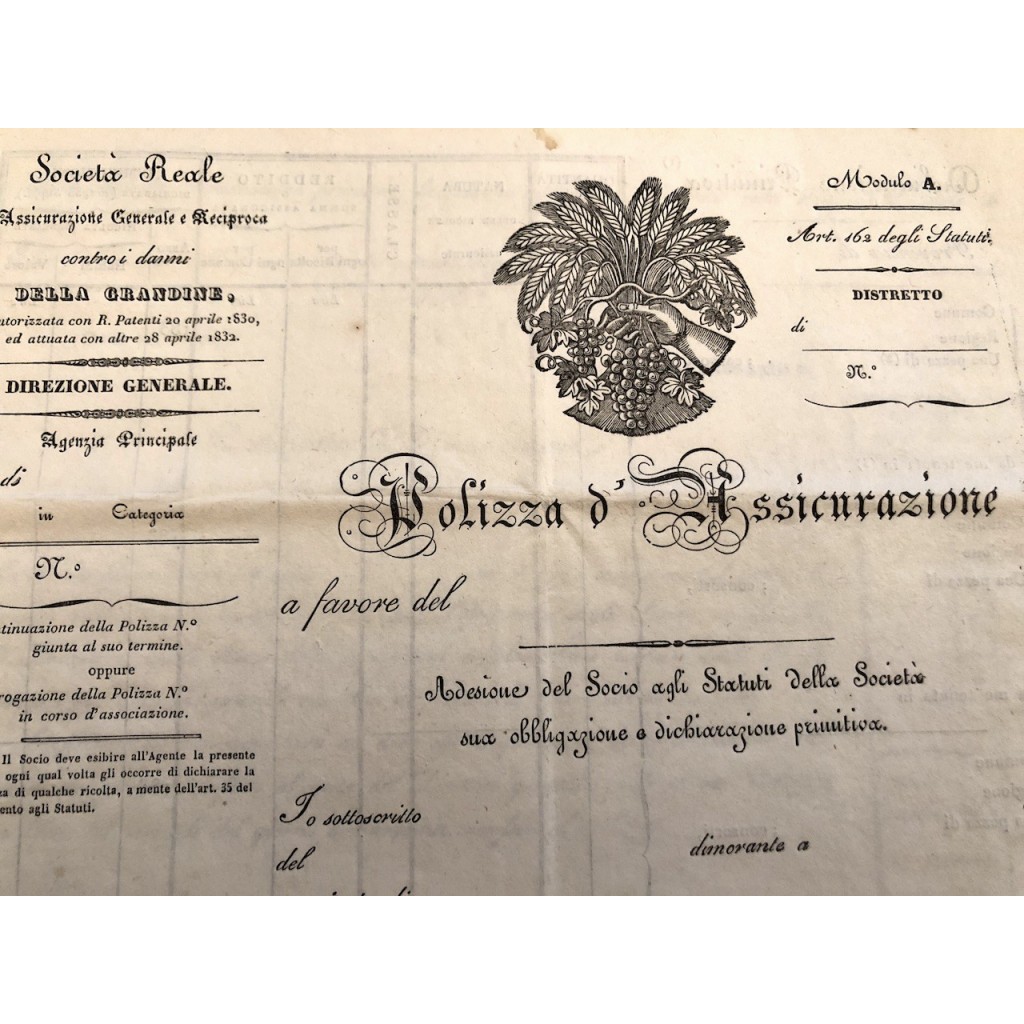 Società Reale
Assicurazione Generale e Reciproca
contro i danni
DELLA GRANDINE,
utorizzata con R. Patenti 20 aprile 1830,
ed attuata con altre 28 aprile 1832.
DIREZIONE GENERALE.
Agenzia Principale
di
in Categoria
N.º
tinuazione della Polizza N.º
giunta al suo termine.
oppure
rogazione della Polizza N.º
in corso d'associazione.
Il Socio deve esibire all'Agente la presente
ogni qual volta gli occorre di dichiarare la
za di qualche ricolta, a mente dell'art. 35 del
ento agli Statuti.
Modulo A.
Art. 162 degli Statuti.
DISTRETTO
di
N.º
Polizza d'Assicurazione
a favore del
Adesione del Socio agli Statuti della Società
sua obbligazione e dichiarazione primitiva.
Io sottoscritto
dimorante a
del